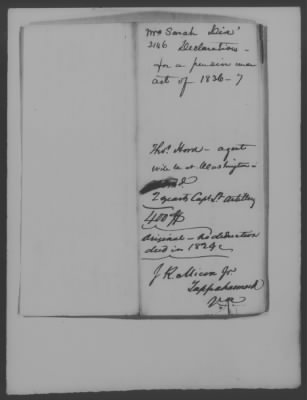 Mrs Sarah Dix'
3146 Declaration -
for a pension under
act of 1836-7
Thos. Hord - agent
will be at Washington -
2 years Capt Lt artillery
400 $
original - no deduction
died in 1824
J. R. Micou Jr.
Tappahannock
Va